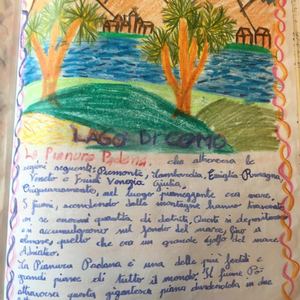 LAGO DI COMO
La Pianura Padana: che attraversa le
regioni seguenti: Piemonte, Lombardia, Emilia Romagna,
Veneto e Friuli Venezia Giulia.
nel luogo era mare.
I fiumi, scendendo dalle montagne hanno
enormi quantità di detriti. Questi si
e si accumularono sul fondo del mare, fino a
quello che era un grande golfo del mare
Adriatico.
La Pianura Padana è una delle più fertili e
grandi pianure di tutto il mondo. Il fiume Po
attraversa questa gigantesca piana dividendola in due